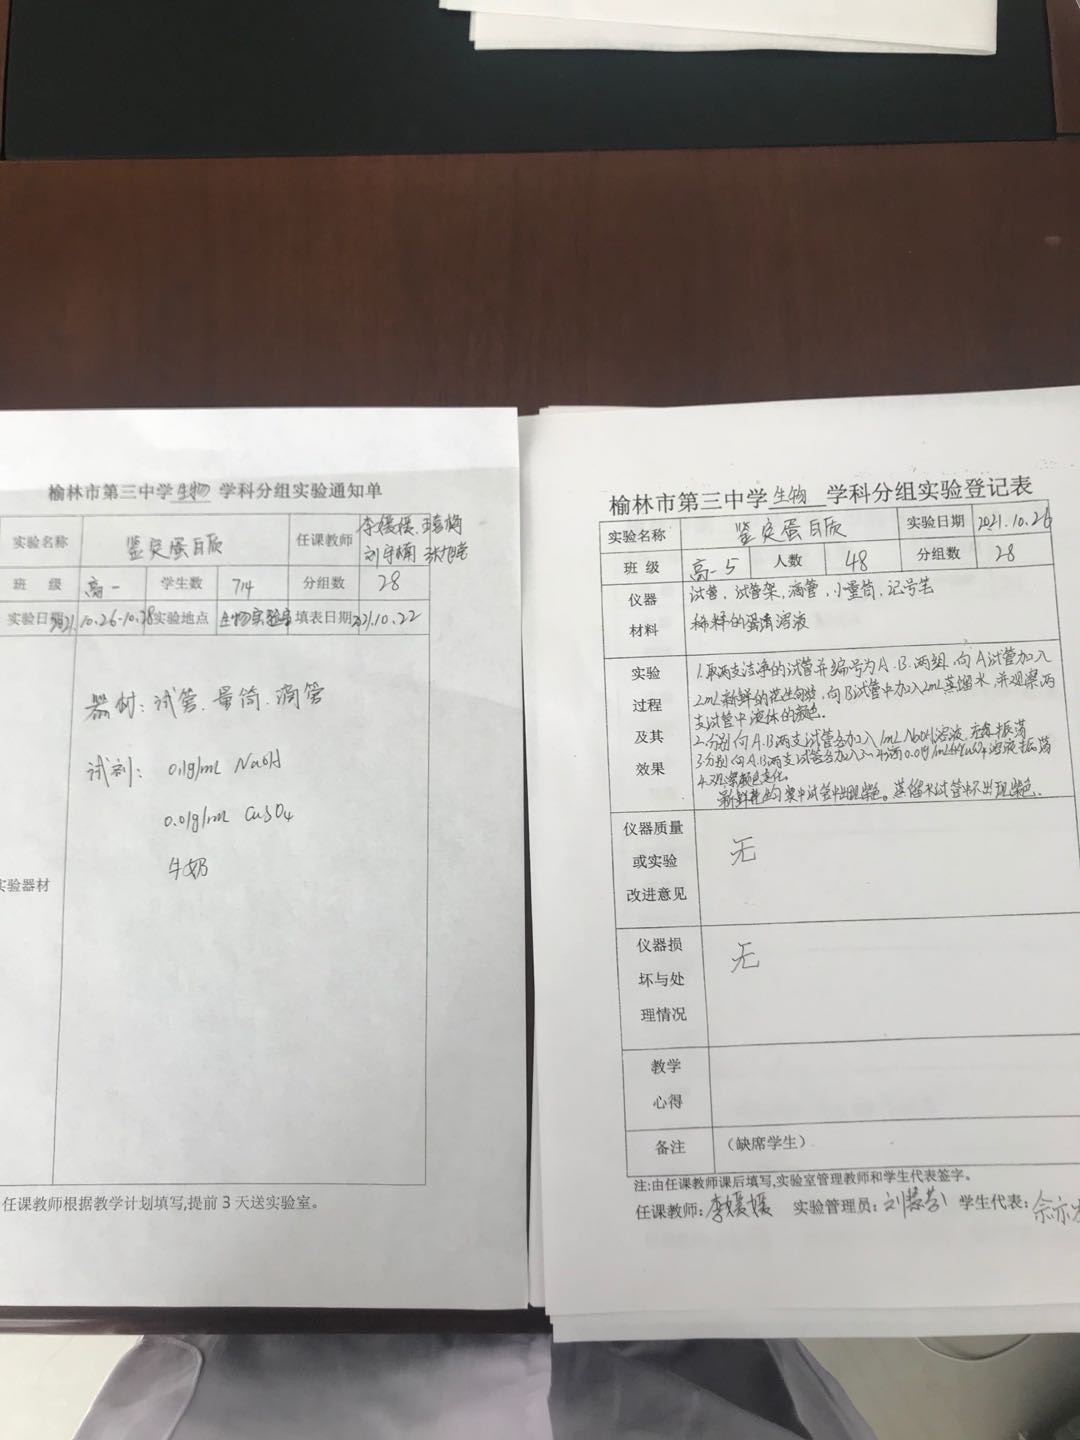 榆林市第三中学生物 学科分组实验通知单
实验名称 鉴定蛋白质 任课教师 李媛媛、王喜梅
班 级 高一 学生数 714 分组数 28
实验日期 2021.10.26-10.28 实验地点 生物实验室 填表日期 2021.10.22
器材：试管、量筒、滴管
试剂： 0.1g/mL NaOH
0.01g/mL CuSO4
牛奶
实验器材
任课教师根据教学计划填写,提前 3 天送实验室。
榆林市第三中学生物 学科分组实验登记表
实验名称 鉴定蛋白质 实验日期 2021.10.26
班 级 高一5 人数 48 分组数 28
仪器 试管、试管架、滴管、小量筒、记号笔
材料 稀释的蛋清溶液
实验 1.取两支洁净的试管并编号为A.B.两组，向A试管加入
过程 2mL新鲜的花生匀浆，向B试管中加入2mL蒸馏水，并观察两
支试管中液体的颜色。
及其 2.分别向A.B两支试管各加入1mL NaOH溶液，充分振荡
效果 3.分别向A.B两支试管各加入3~4滴0.01g/mL的CuSO4溶液振荡
4.观察颜色变化。
新鲜花生匀浆中试管中出现紫色。蒸馏水试管中不出现紫色.
仪器质量
或实验 无
改进意见
仪器损 无
坏与处
理情况
教学
心得
备注 （缺席学生）
注:由任课教师课后填写,实验室管理教师和学生代表签字。
任课教师: 李媛媛 实验管理员: 刘慧芳 学生代表: